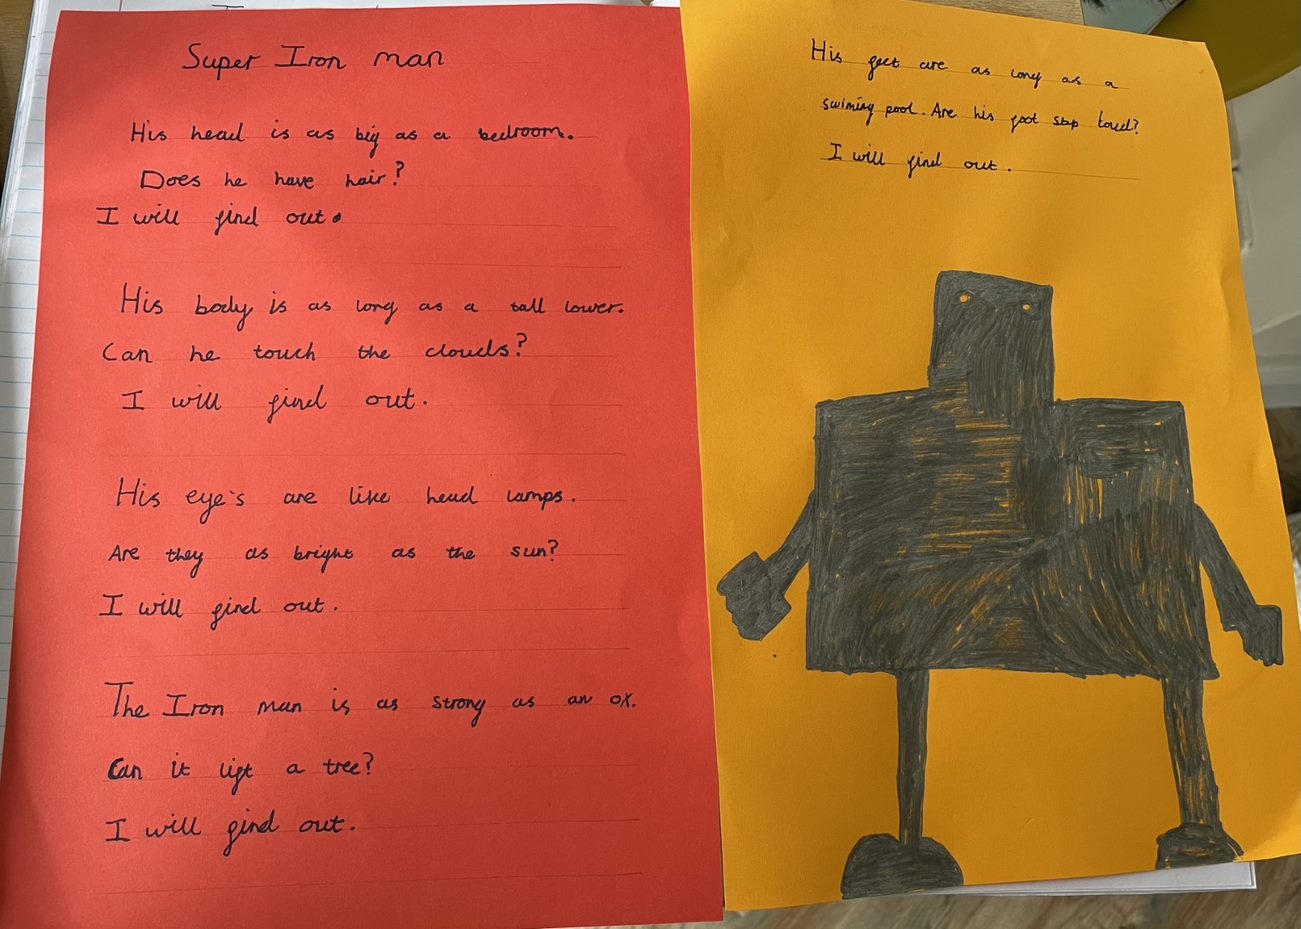 Super Iron man
His head is as big as a bedroom.
Does he have hair?
I will find out.
His body is as long as a tall tower.
Can he touch the clouds?
I will find out.
His eye's are like head lamps.
Are they as bright as the sun?
I will find out.
The Iron man is as strong as an ox.
Can it lift a tree?
I will find out.
His feet are as long as a
swiming pool. Are his foot step loud?
I will find out.